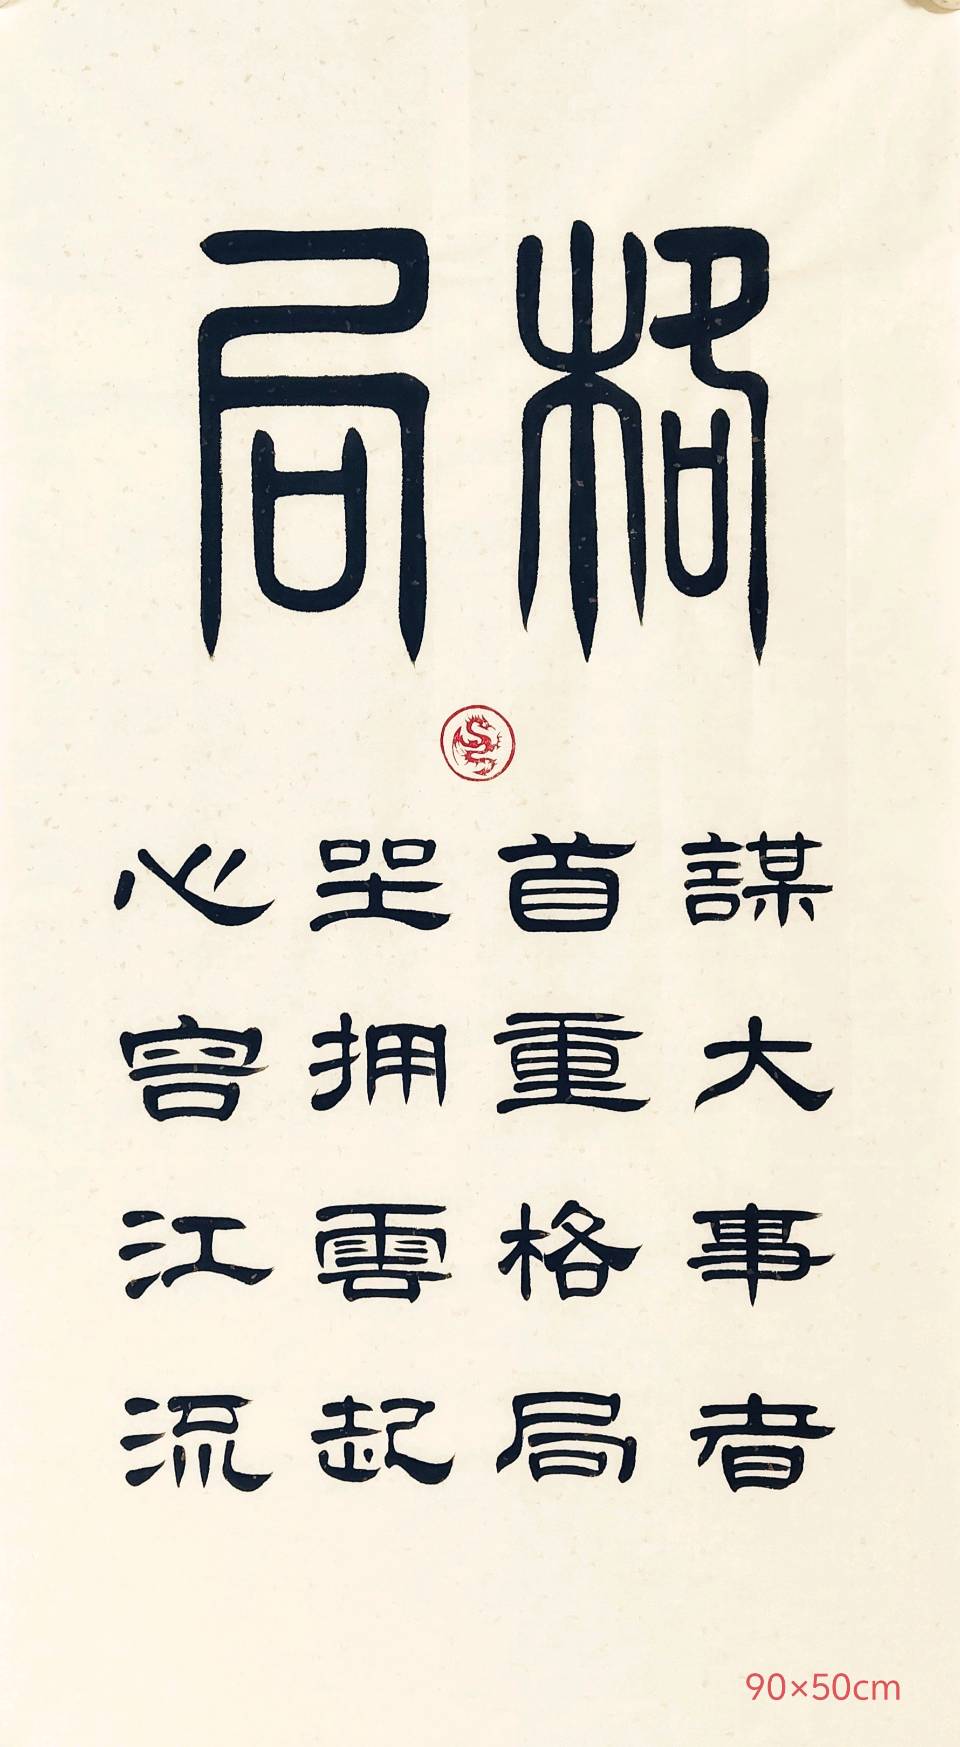 格局
謀大事者
首重格局
坐拥雲起
心容江流
90×50cm